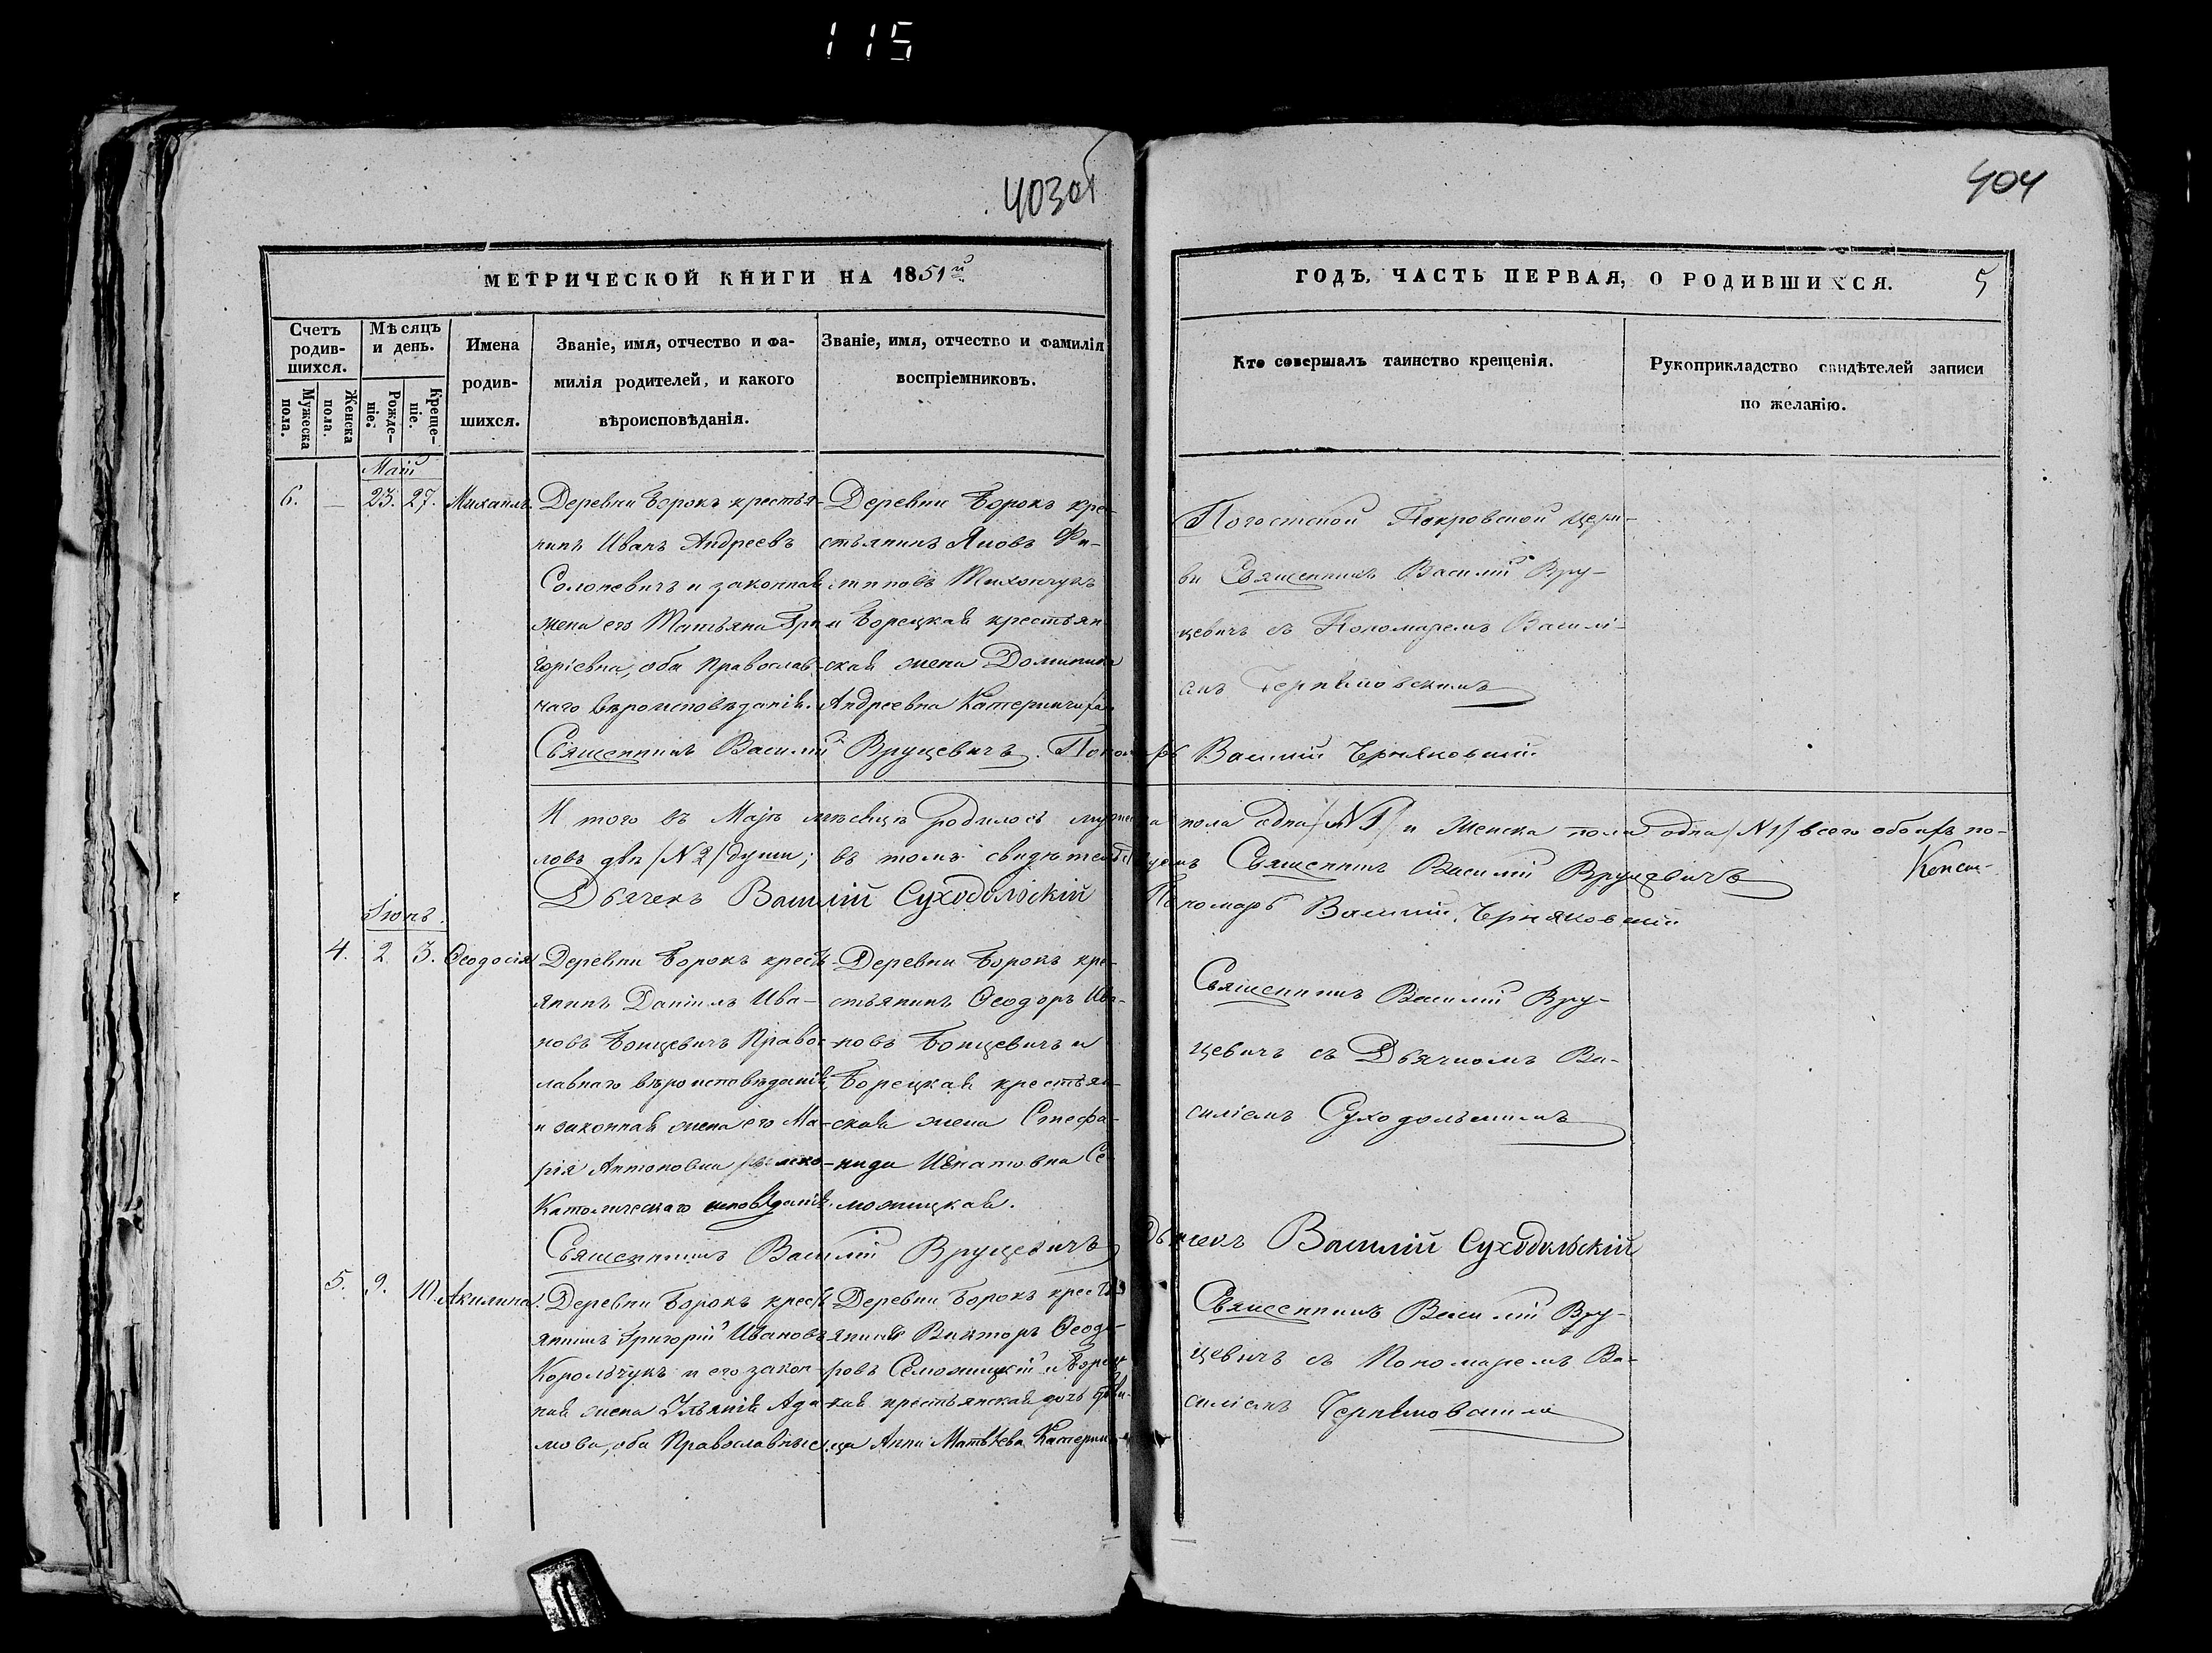 115
403 об
404
МЕТРИЧЕСКОЙ КНИГИ НА 1851й
ГОДЪ, ЧАСТЬ ПЕРВАЯ, О РОДИВШИХСЯ. 5
Счетъ родив-шихся.
Мужеска пола.
Женска пола.
Мѣсяцъ и день.
Рожде-ніе.
Креще-ніе.
Имена родив-шихся.
Званіе, имя, отчество и фа-
милія родителей, и какого
вѣроисповѣданія.
Званіе, имя, отчество и фамилія
воспріемниковъ.
Кто совершалъ таинство крещенія.
Рукоприкладство свидѣтелей записи
по желанію.
Маій
6. — 23. 27. Михаилъ.
Деревни Борокъ крестья-
нинъ Иванъ Андреевъ
Солоневичъ и законная
жена его Татьяна Гри
горіевна, оба Православ-
наго вѣроисповѣданія.
Деревни Борокъ кре-
стьянинъ Яковъ Фи-
липповъ Тихончукъ
и Борецкая крестьян
ская жена Доминика
Андреевна
Погостской Покровской Церк-
ви Священникъ Василій Вру-
цевичъ съ Пономаремъ Василі-
емъ Черняковскимъ
Священникъ Василій Вруцевичъ. Пономарь Василій Черняковскій.
И того въ Маіѣ мѣсяцѣ родилось мужеска пола одна /№1/ и Женска пола одна /№1/ всего обоихъ по-
ловъ двѣ /№2/ души; въ томъ свидѣтельствуемъ Священникъ Василій Вруцевичъ
Дьячекъ Василій Суходольскій Пономарь Василій Черняковскій
Іюнь.
4. 2. 3. Ѳеодосія
Деревни Борокъ кресть-
янинъ Даніилъ Ива-
новъ Бонцевичъ Правос-
лавнаго вѣроисповѣданія,
и законная жена его Ма-
рія Антоновна римско-
Католическаго исповѣданія.
Деревни Борокъ кре-
стьянинъ Ѳеодоръ Ива-
новъ Бонцевичъ и
Борецкая крестьян-
ская жена Стефа-
нида Игнатовна Се
можицкая.
Священникъ Василій Вру-
цевичъ съ Дьячкомъ Ва-
силіемъ Суходольскимъ
Священникъ Василій Вруцевичъ Дьячекъ Василій Суходольскій
5. 9. 10. Акилина.
Деревни Борокъ кресть
янинъ Григорій Ивановъ
Корольчукъ и его закон-
ная жена Ульянія Ада
мова, оба Православные.
Деревни Борокъ кресть
янинъ Викторъ Ѳеодо-
ровъ Семожицкій и Борец
кая крестьянская дочь дѣви-
ца Анна Матвѣева
Священникъ Василій Вру-
цевичъ съ Пономаремъ Ва-
силіемъ Черняковскимъ